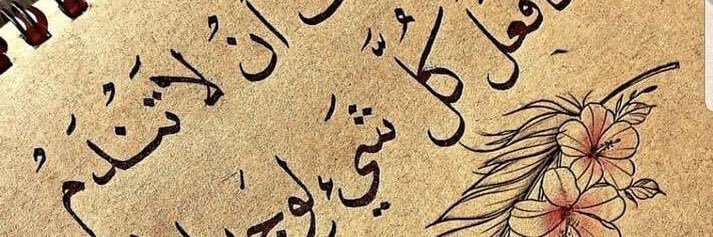 أَنْ لَا تَنْدَمَ
فافعل كُلَّ شَيْءٍ